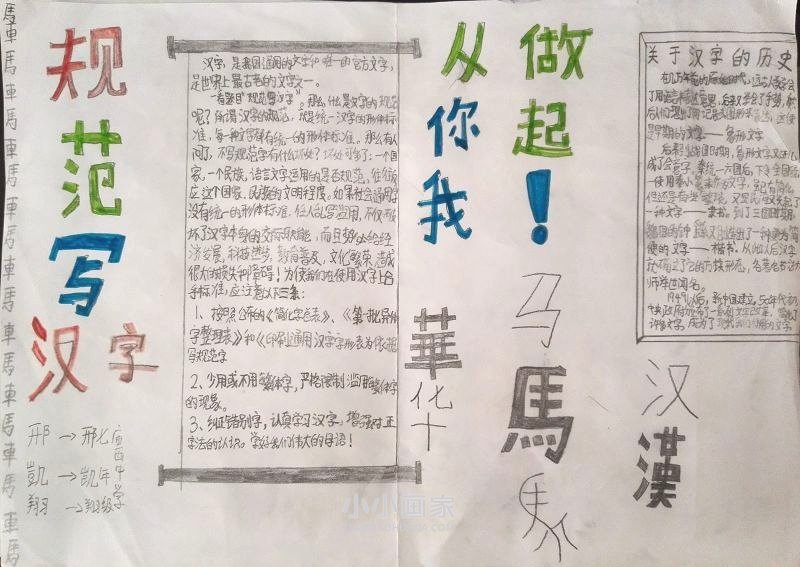 馬
車
馬
車
馬
車
馬
車
馬
車
馬
車
馬
車
馬
車
馬
車
馬
車
馬
車
馬
规
范
写
汉字
邢→邢七
凱→凱年
翔→翔级
庙
西
中
学
汉字,是我国通用的文字和唯一的官方文字,
是世界上最古老的文字之一。
那么,什么是文字的规范
呢?所谓汉字的规范,就是统一汉字的形体标
准,每一种文字都有统一的形体标准。那么有人
问了,不写规范字有什么坏处?坏处可多了:一个国
家,一个民族,语言文字运用的是否规范,往往
应这个国家、民族的文明程度。如果社会通用字
没有统一的形体标准,任人乱写滥用,不仅破
坏了汉字本身的交际职能,而且势必给经
济发展,科技进步,教育普及,文化繁荣,造成
很大的损失和障碍!为使我们在使用汉字上合
乎标准,应注意以下三条:
1、按照公布的《简化字总表》、《第一批异体
字整理表》和《印刷通用汉字字形表》为依据
写规范字
2、少用或不用繁体字,严格限制滥用繁体字
的现象。
3、纠正错别字,认真学习汉字,增强对正
字法的认识。学好我们伟大的母语!
从
你
我
做
起
!
華
化
十
马
馬
关于汉字的历史
是早期的文字——象形文字
后来到战国时期,象形文字又进化
成了会意字。秦统一六国后,下令全国统
一使用秦小篆
一种文字——隶书。到了三国时期,
便的文字——楷书。从此以后汉字
1949以后,新中国建立,
汉
漢
小小画家